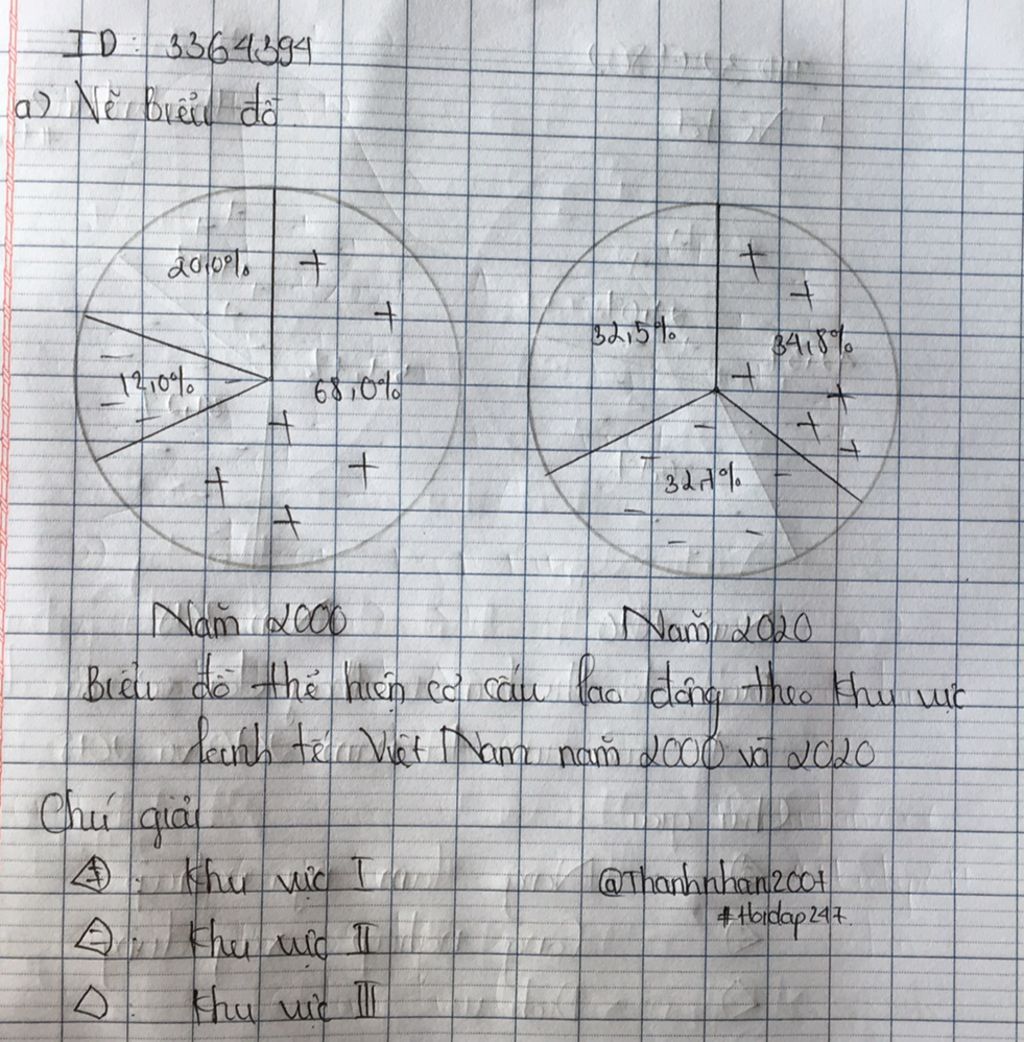 ID: 3364394
a) Vẽ Biểu đồ
20,0%
12,0%
68,0%
32,5%
34,8%
32,7%
Năm 2000
Năm 2020
Biểu đồ thể hiện cơ cấu lao động theo khu vực
kinh tế Việt Nam năm 2000 và 2020
Chú giải
+ : Khu vực I
- : Khu vực II
: Khu vực III
@Thanhnhan2007
#Hoidap247